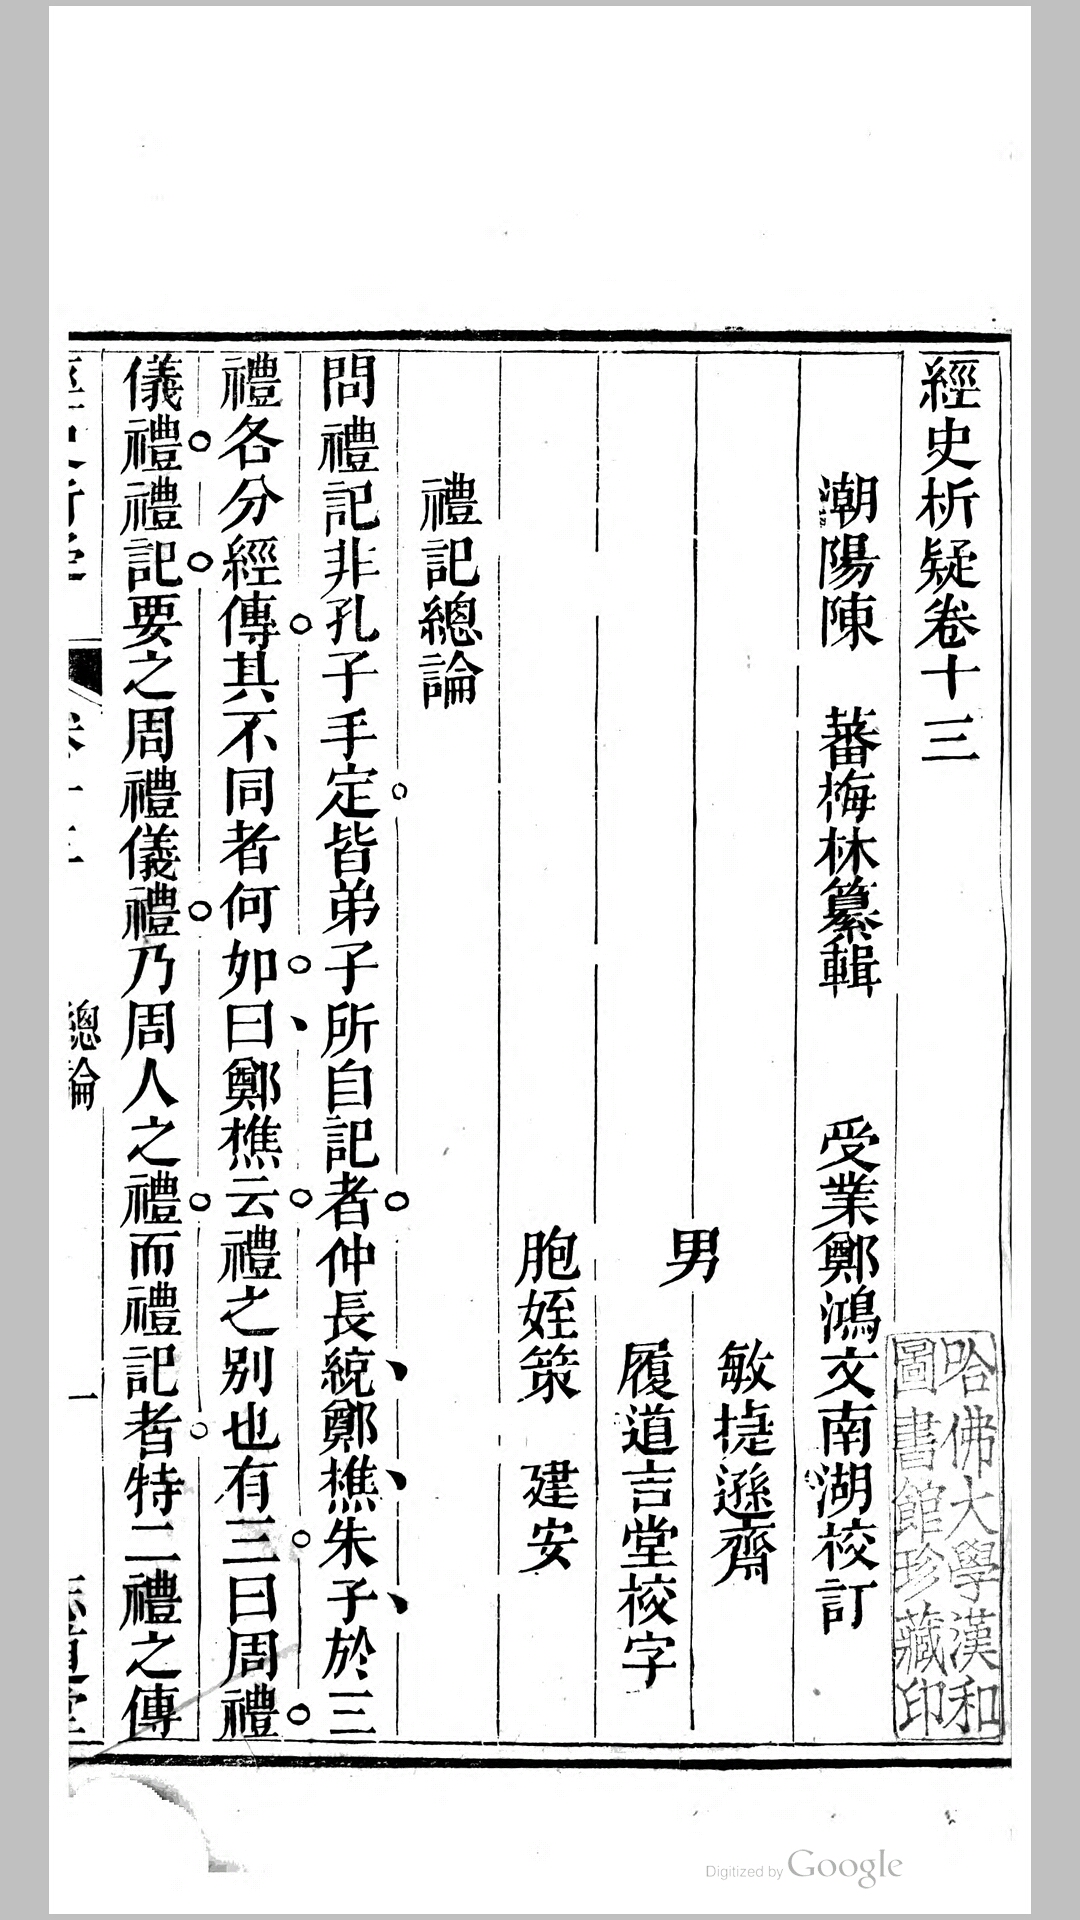 經史析疑卷十三
潮陽陳 蕃梅林纂輯 受業鄭鴻文南湖校訂
敏捷遜齋
男
履道言堂校字
胞姪策 建安
禮記總論
問禮記非孔子手定皆弟子所自記者仲長統鄭樵朱子於三
禮各分經傳其不同者何如曰鄭樵云禮之別也有三曰周禮
儀禮禮記要之周禮儀禮乃周人之禮而禮記者特二禮之傳
總論
一
哈佛大學漢和
圖書館珍藏印
Digitized by Google